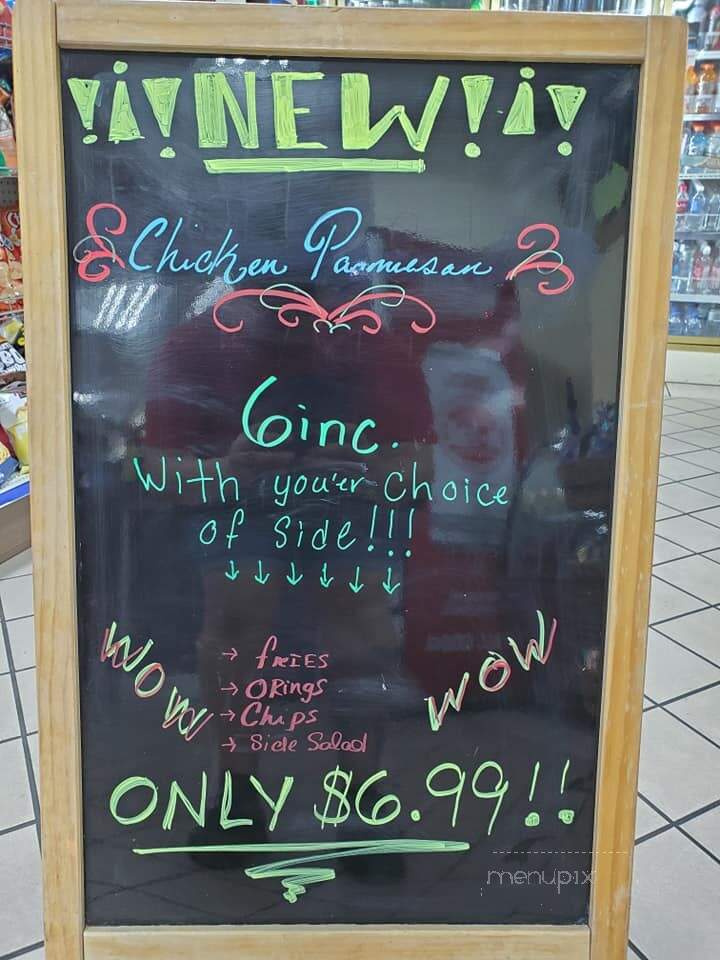 !¡!NEW!¡!
Chicken Parmiesan
6inc.
With you'er choice
of side!!!
↓ ↓ ↓ ↓ ↓ ↓
WOW
WOW
→ fRIES
→ ORings
→ Chips
→ Side Salad
ONLY $6.99!!
menupix